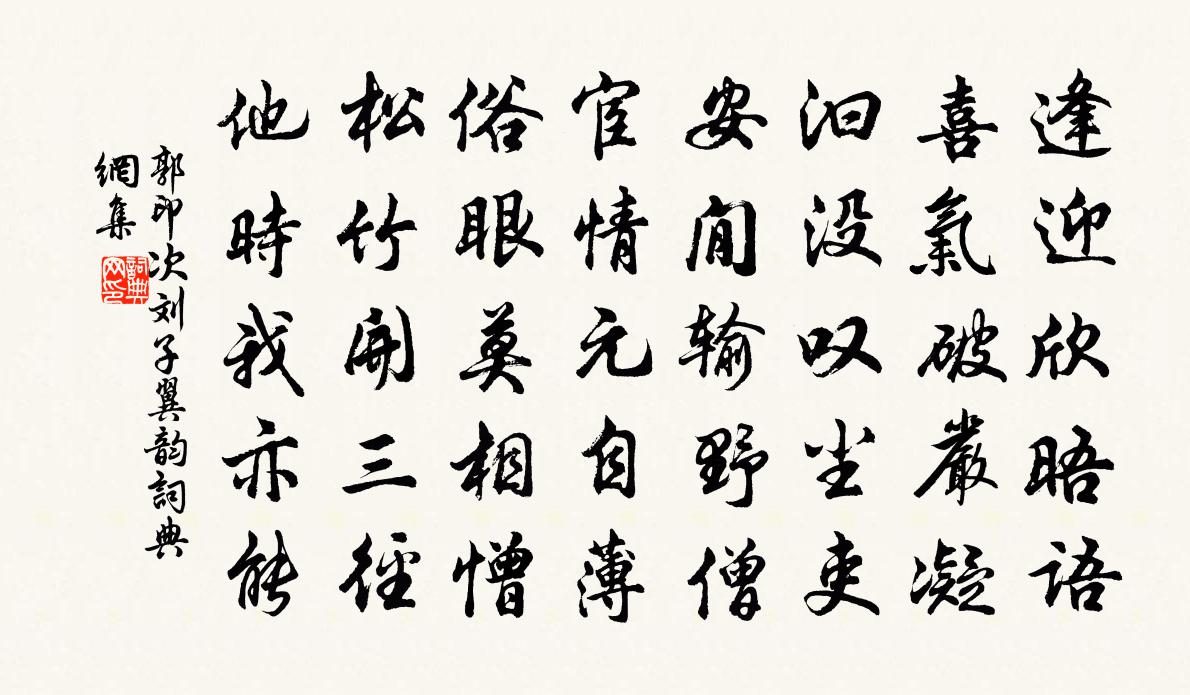 逢迎欣晤語
喜氣破嚴凝
汩没叹尘吏
安閒输野僧
宦情元自薄
俗眼莫相憎
松竹開三徑
他時我亦能
郭印次刘子翼韵詞典
網集
詞典
网印